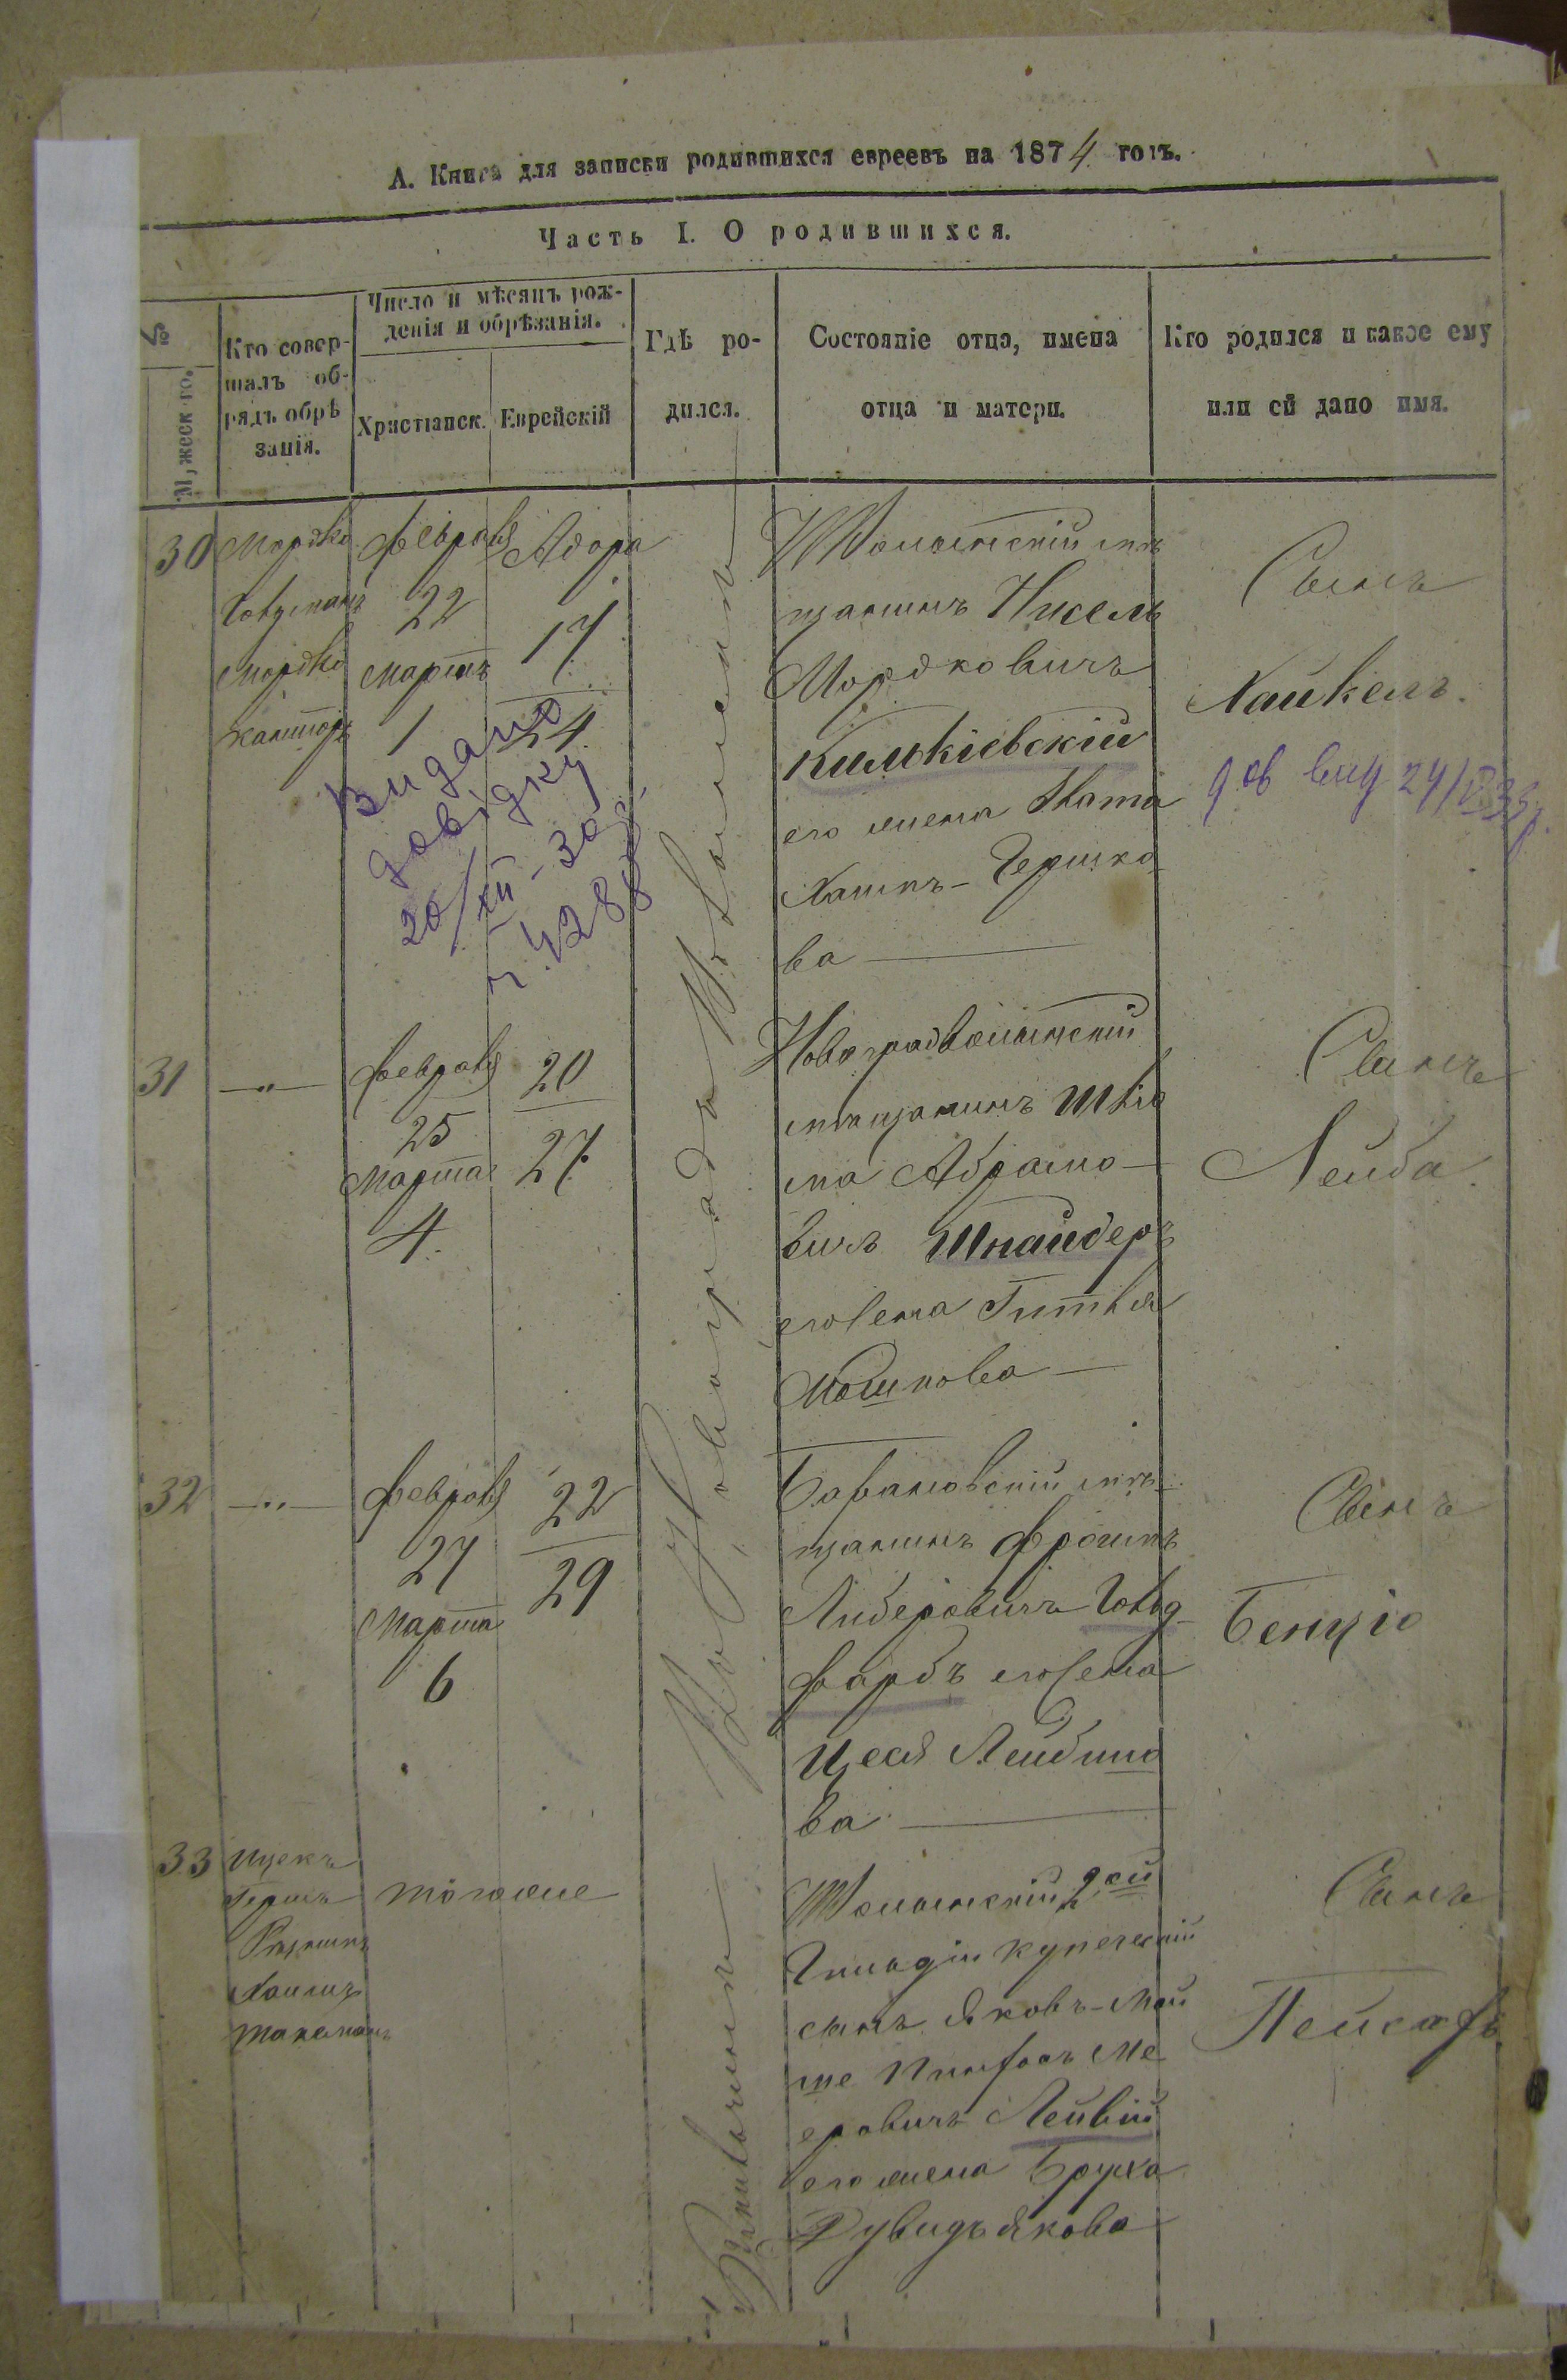 А. Книга для записки родившихся евреевъ на 1874 годъ.
Часть I. О родившихся.
№
Мужеск по.
Кто совер-
шалъ об-
рядъ обрѣ
занія.
Число и мѣсяцъ рож-
денія и обрѣзанія.
Христіанск.
Еврейскій
Гдѣ ро-
дился.
Состояніе отца, имена
отца и матери.
Кто родился и какое ему
или ей дано имя.
30
Мордко
Мордко
Канторъ
Февраля
22
Мартъ
1
Адара
17
24
Видано
довідку
20/XII-30
ч. 4288
мѣ
щанинъ Нисель
Мордковичъ
Килькіевскій
его жена
Гершко
ва
Сынъ
Хайкель.
дов вид 24/
31
—"—
Февраля
25
Марта
4.
20
27
Новоградволынскій
мѣщанинъ
Абрамо-
вичъ Шнайдеръ
его жена Гитля
Мошкова
Сынъ
Лейба.
32
—"—
Февраля
27
Марта
6
22
29
Барановскій мѣ-
щанинъ Фроимъ
Либеровичъ Гольд-
фарбъ его жена
Цеся Лейбино
ва
Сынъ
Бенціо
33
Ицекъ
Гершъ
Хаимъ
тогоже
2ой
Гильдіи купеческій
сынъ Яковъ-Мой
ше Пинхосъ Ме
еровичъ Лейвій
его жена Бруха
Дувидъ Якова
Сынъ
Пейсахъ